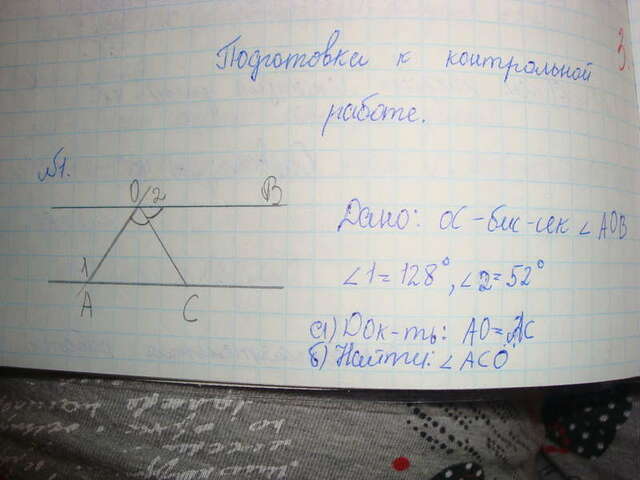 3
Подготовка к контрольной
работе.
№1.
O 2 B
1
A C
Дано: OC - бис-сек ∠AOB
∠1 = 128°, ∠2 = 52°
а) Док-ть: AO = AC
б) Найти: ∠ACO